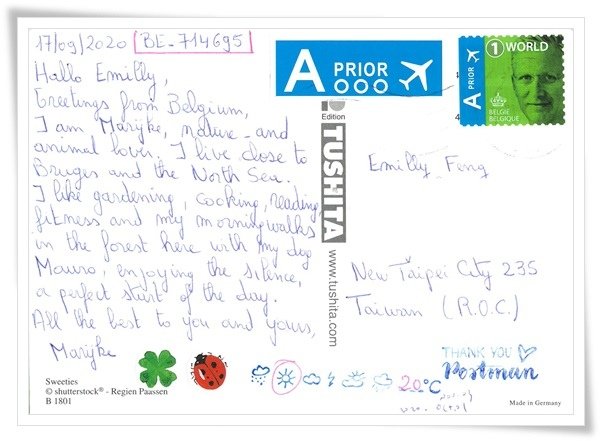 17/09/2020 BE-714695
Hallo Emilly,
Greetings from Belgium,
I am Marijke, nature- and
animal lover, I live close to
Bruges and the North Sea.
I like gardening, cooking, reading,
fitness and my morningwalks
in the forest here with my dog
Mauro, enjoying the silence,
a perfect start of the day.
All the best to you and yours,
Marijke
Sweeties
© shutterstock® - Regien Paassen
B 1801
A PRIOR
A PRIOR
1 WORLD
BELGIE
BELGIQUE
Edition
TUSHITA
www.tushita.com
Emilly Feng
New Taipei City 235
Taiwan (R.O.C.)
THANK YOU
Postman
20°C
Made in Germany